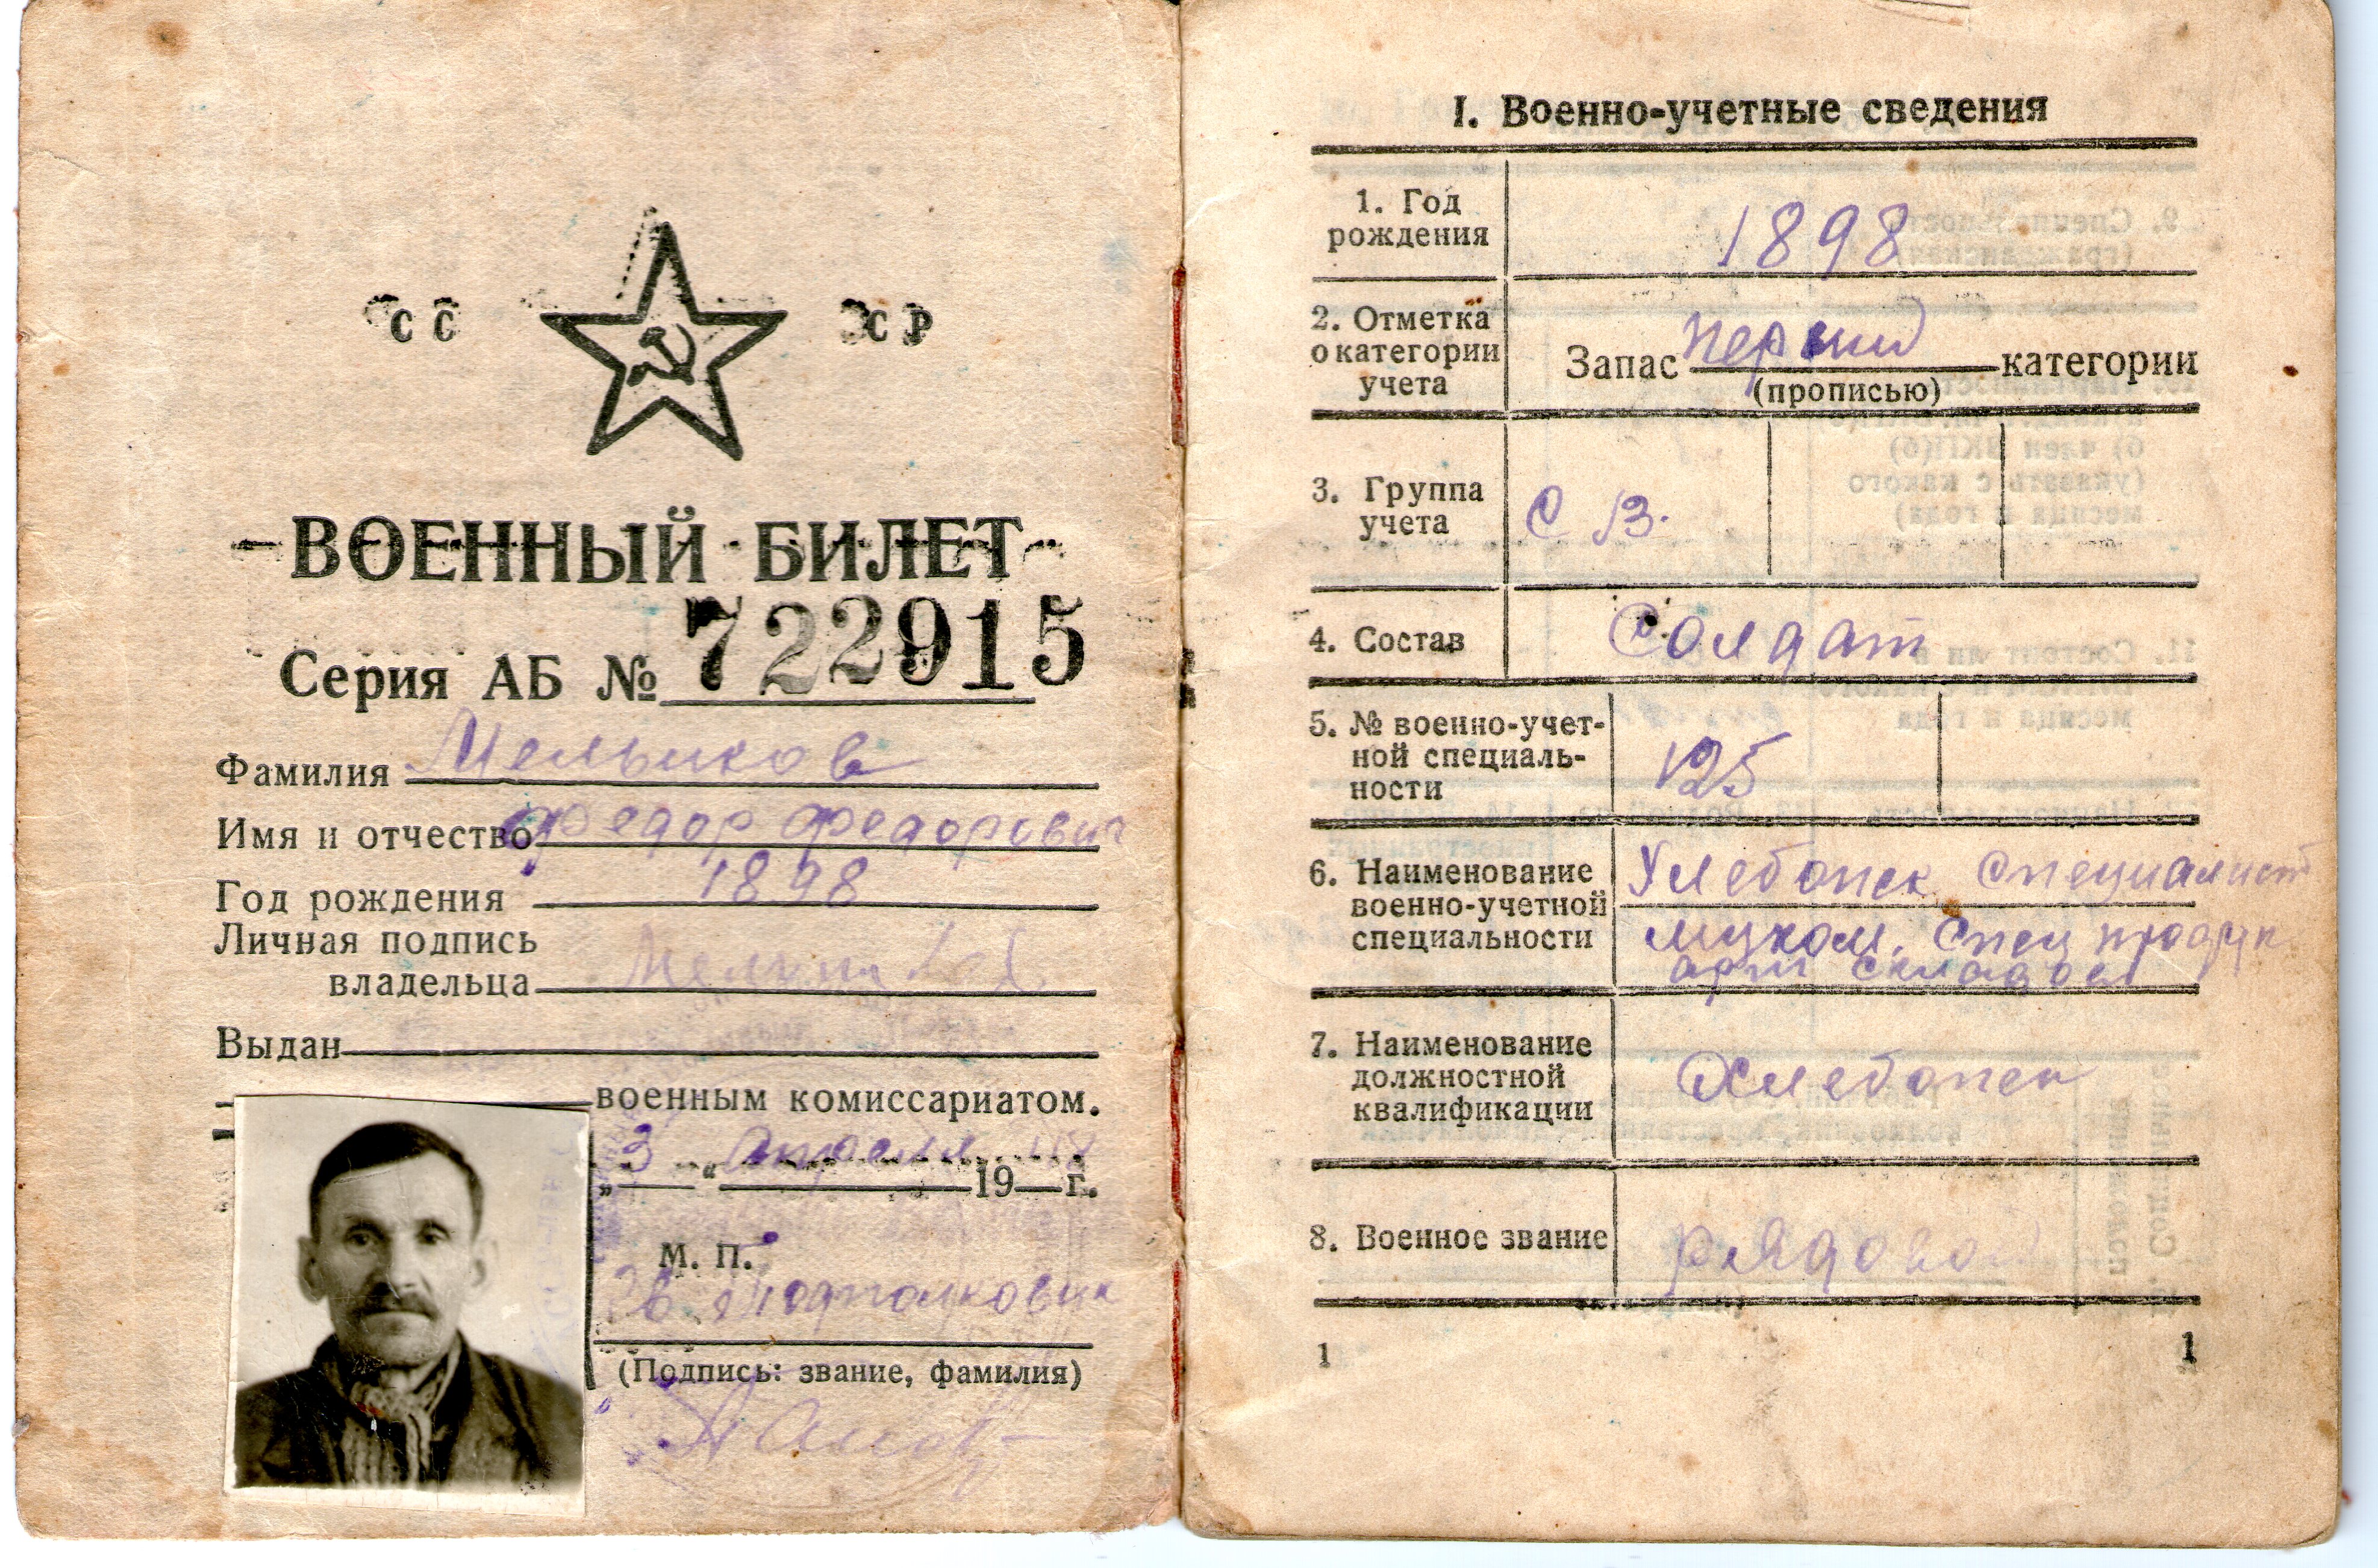 СС СР
ВОЕННЫЙ БИЛЕТ
Серия АБ № 722915
Фамилия Мельников
Имя и отчество Федор Федорович
Год рождения 1898
Личная подпись
владельца
Выдан
военным комиссариатом.
„3“ апреля 19 г.
М. П.
Подполковник
(Подпись: звание, фамилия)
I. Военно-учетные сведения
1. Год
рождения
1898
2. Отметка
о категории
учета
Запас первой категории
(прописью)
3. Группа
учета
С В.
4. Состав
Солдат
5. № военно-учет-
ной специаль-
ности
125
6. Наименование
военно-учетной
специальности
Хлебопек специалист
муком. спец продук
арт складов
7. Наименование
должностной
квалификации
Хлебопек
8. Военное звание
рядовой
1 1